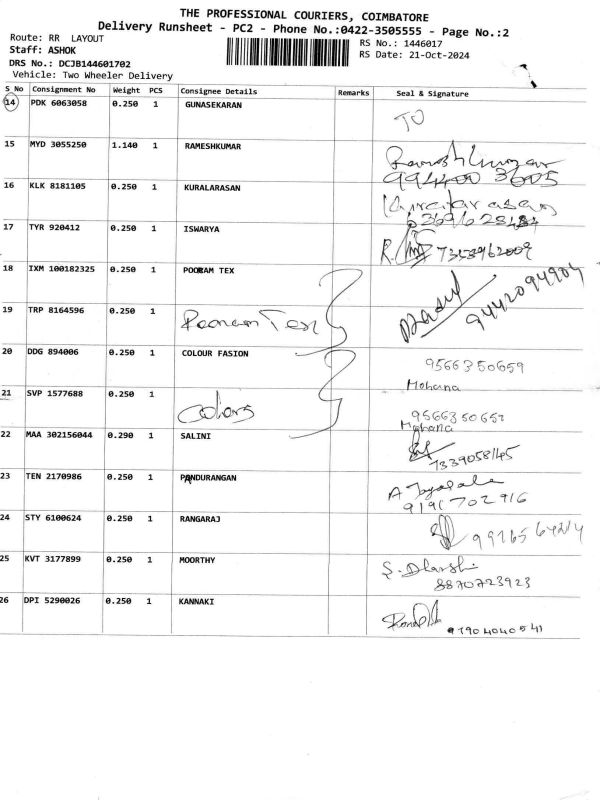 THE PROFESSIONAL COURIERS, COIMBATORE
Delivery Runsheet - PC2 - Phone No.:0422-3505555 - Page No.:2
Route: RR LAYOUT
RS No.: 1446017
Staff: ASHOK
RS Date: 21-Oct-2024
DRS No.: DCJB144601702
Vehicle: Two Wheeler Delivery
S No Consignment No Weight PCS Consignee Details Remarks Seal & Signature
14 PDK 6063058 0.250 1 GUNASEKARAN
TO
15 MYD 3055250 1.140 1 RAMESHKUMAR
Rameshkumar
994400 3605
16 KLK 8181105 0.250 1 KURALARASAN
Kuralarasan
17 TYR 920412 0.250 1 ISWARYA
7353962009
18 IXM 100182325 0.250 1 POORAM TEX
9442094904
19 TRP 8164596 0.250 1 Poonam Tex
20 DDG 894006 0.250 1 COLOUR FASION
9566350659
Mohana
21 SVP 1577688 0.250 1 Colors
9566350659
Mohana
22 MAA 302156044 0.290 1 SALINI
7339058145
23 TEN 2170986 0.250 1 PANDURANGAN
A Jayapala
9191702916
24 STY 6100624 0.250 1 RANGARAJ
25 KVT 3177899 0.250 1 MOORTHY
S. Dharshi
8870723923
26 DPI 5290026 0.250 1 KANNAKI
91904040541